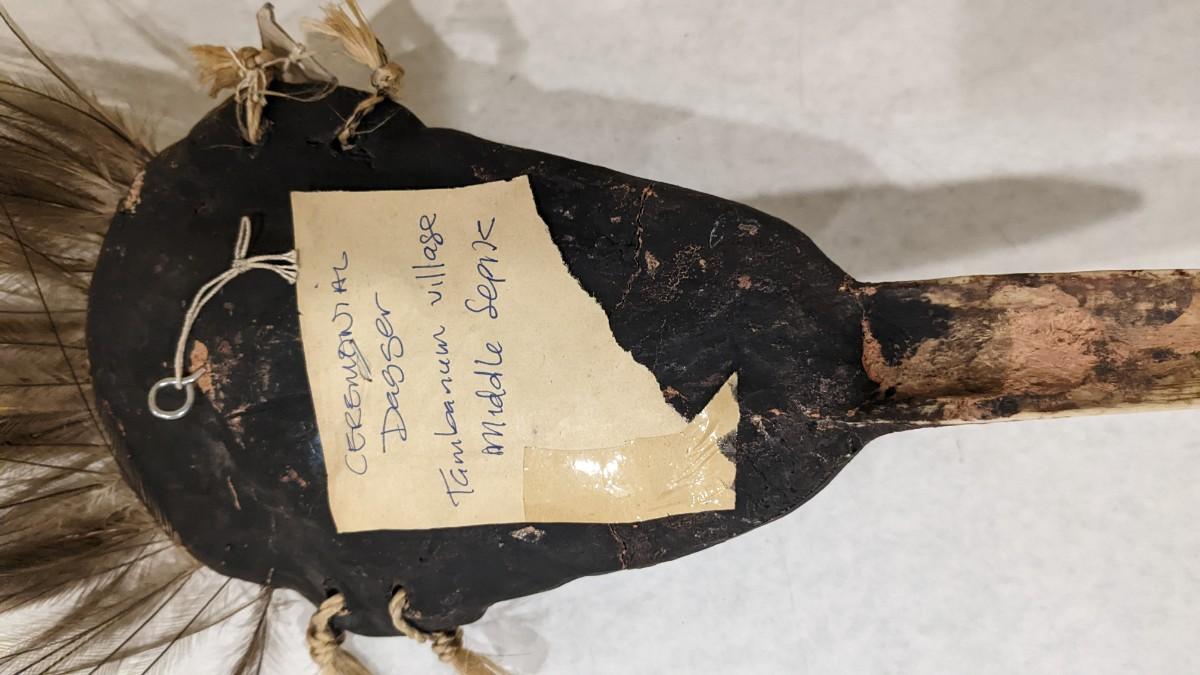 CEREMONIAL
Dagger
Tambanum village
Middle Sepik